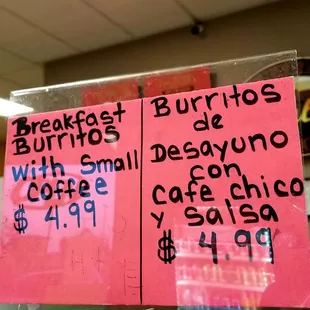 Breakfast
Burritos
With Small
Coffee
$ 4.99
Burritos
de
Desayuno
con
Cafe chico
y salsa
$ 4.99